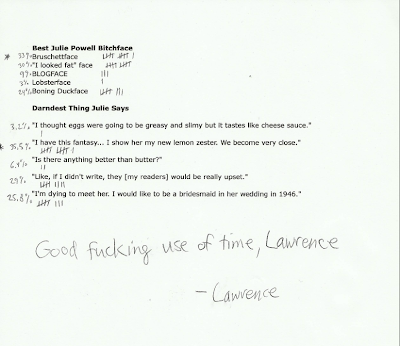 Best Julie Powell Bitchface
* 33% Bruschettface |||| |||| |
30% "I looked fat" face |||| ||||
9% BLOGFACE |||
3% Lobsterface |
24% Boning Duckface |||| |||
Darndest Thing Julie Says
3.2% "I thought eggs were going to be greasy and slimy but it tastes like cheese sauce."
|
* 35.5% "I have this fantasy... I show her my new lemon zester. We become very close."
|||| |||| |
"Is there anything better than butter?"
||
29% "Like, if I didn't write, they [my readers] would be really upset."
|||| ||||
25.8% "I'm dying to meet her. I would like to be a bridesmaid in her wedding in 1946."
|||| |||
Good fucking use of time, Lawrence
- Lawrence